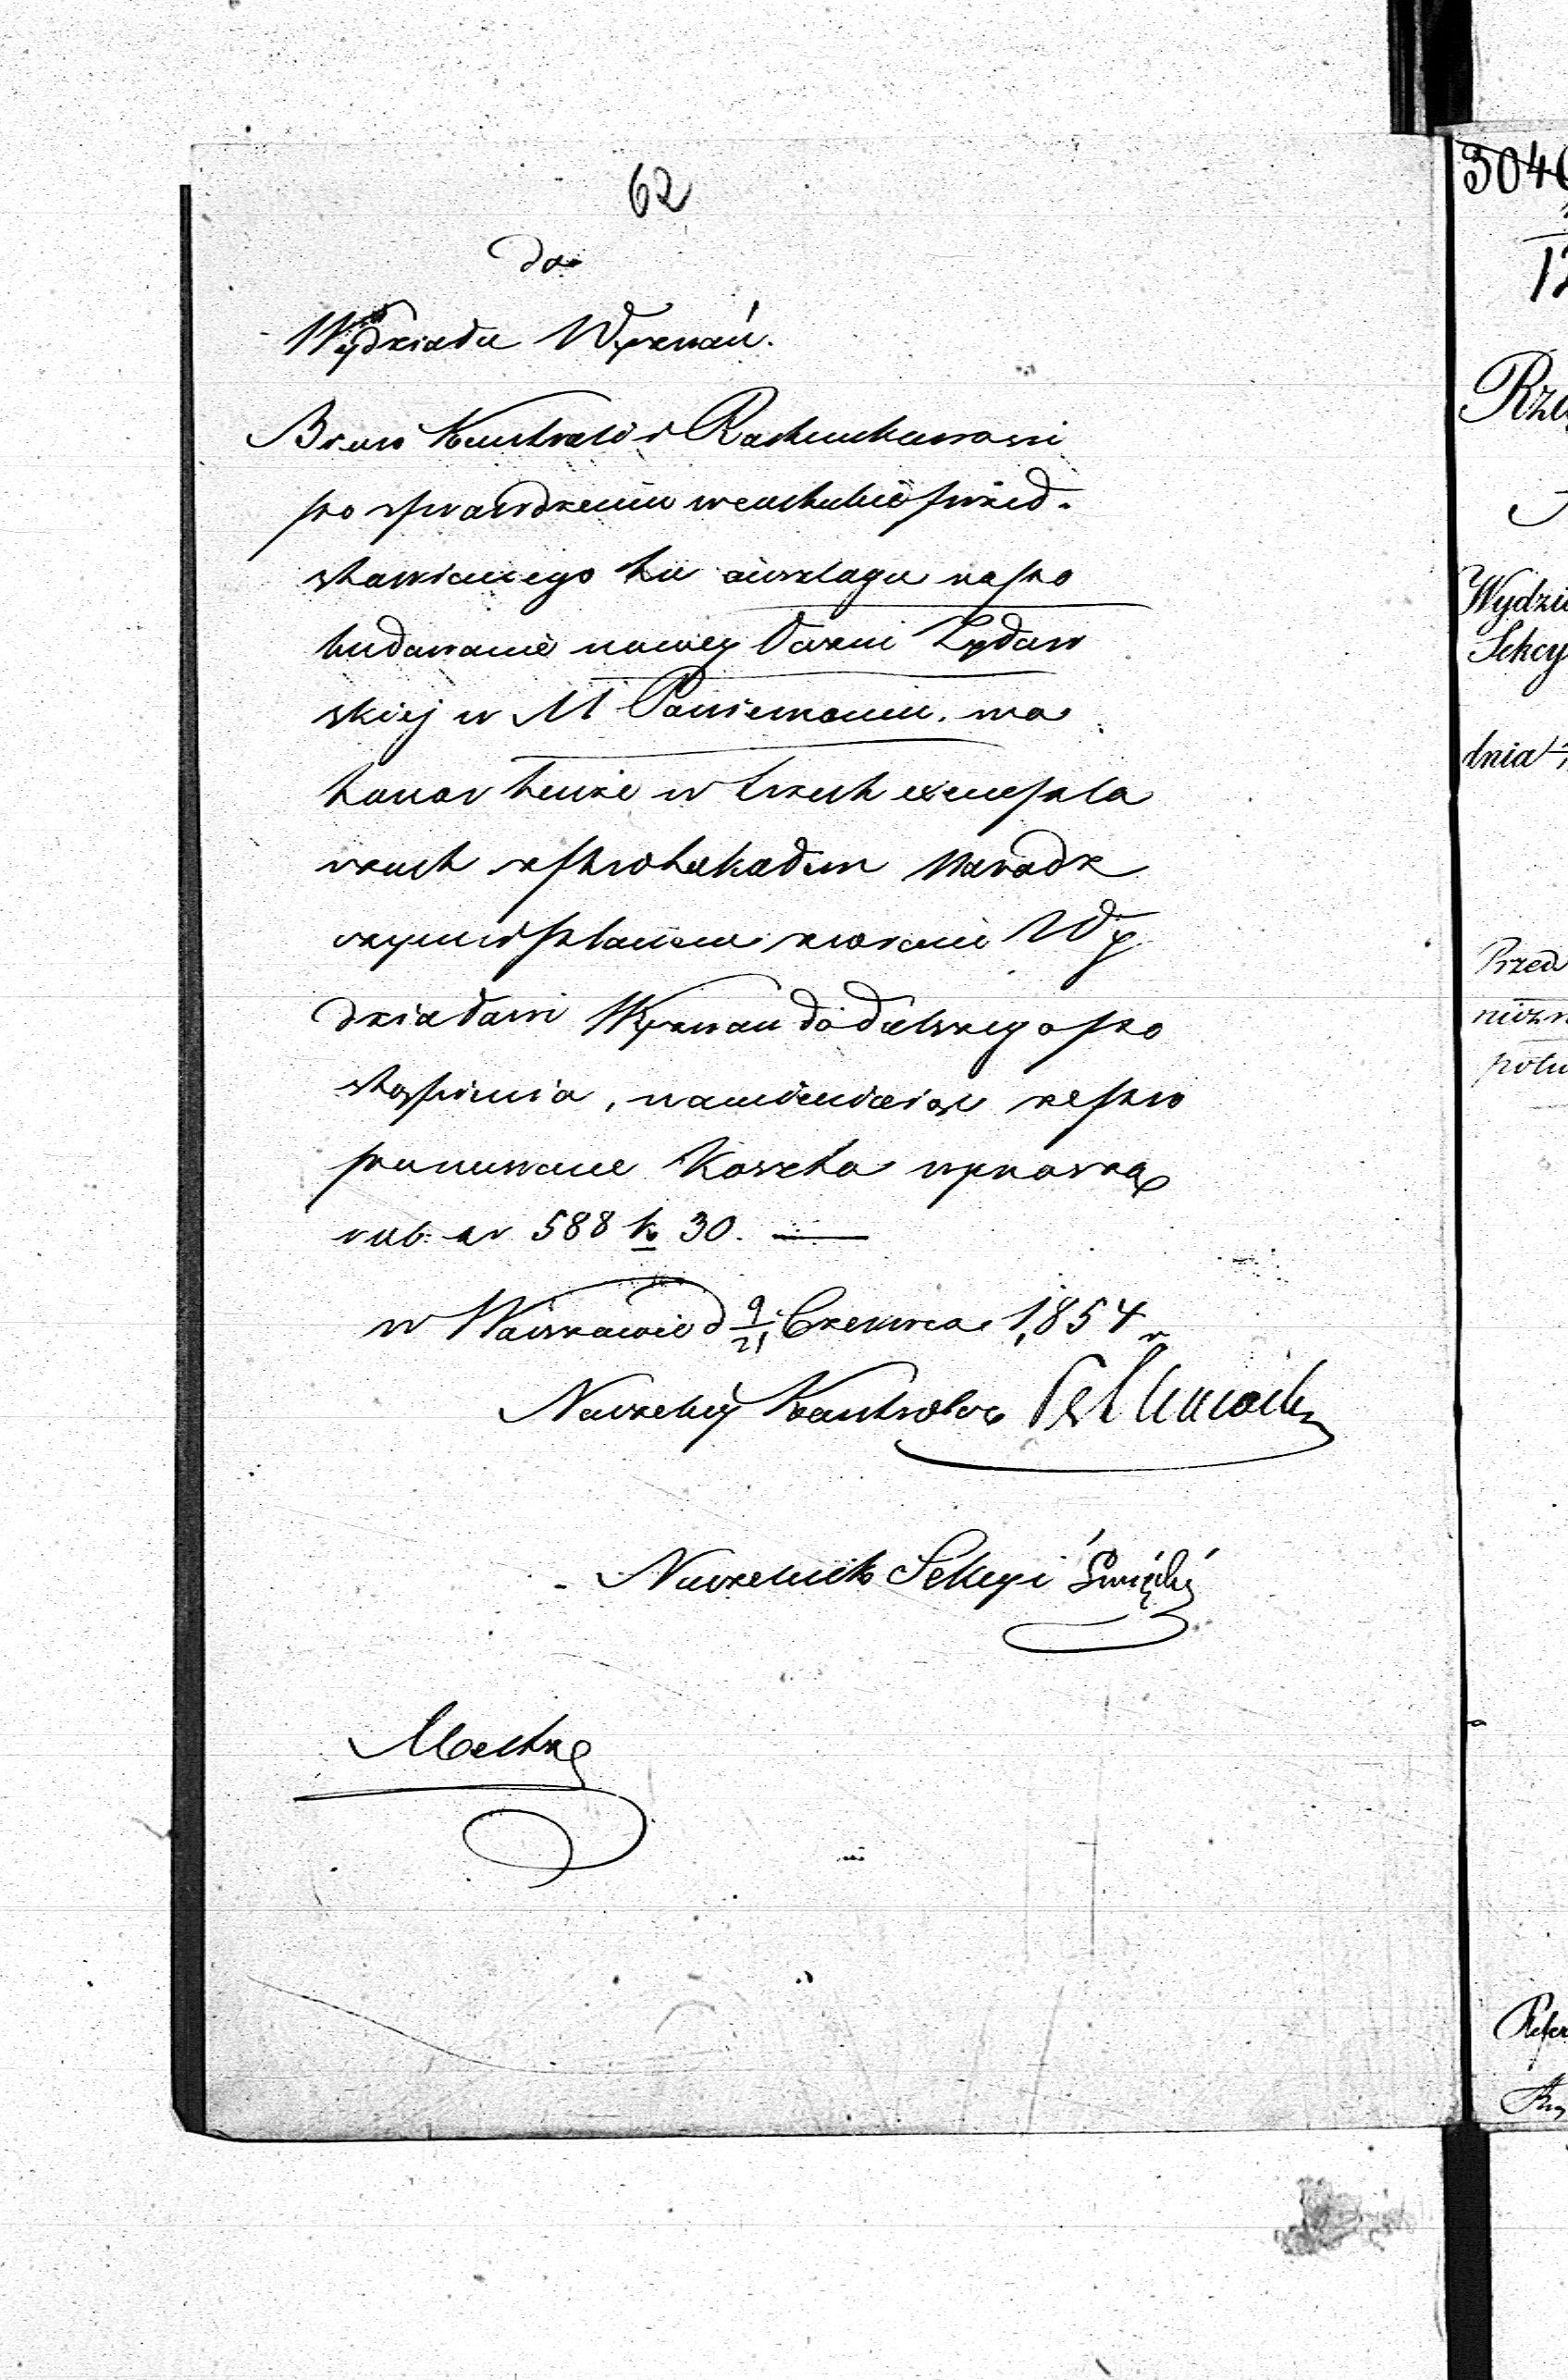 62
do
Wydziału Wyznań.
Biuro Kontroli i Rachunkowości
po sprawdzeniu w rachubie przed-
stawionego tu anszlagu na po
budowanie nowej Łaźni Żydow
skiej w M Poniemoniu.
takowy tenże w trzech exempla
rzach z protokółem Naradz
czym i planem zwraca Wy
działowi Wyznań do dalszego po
stąpienia, namieniając że pro
jektowane Koszta wynoszą
rub. sr 588 k 30.
w Warszawie d 9/21 Czerwca 1854 r
Naczelny Kontroler
Naczelnik Sekcyi Święcki
304
12
Rzą
Wydzia
Sekcy
dnia
Przed
niezn
Refer